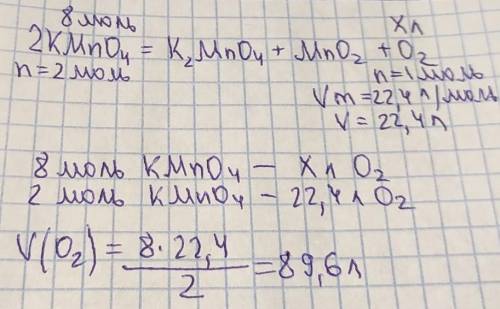 8 моль Xл
2KMnO₄ = K₂MnO₄ + MnO₂ + O₂
n = 2 моль n = 1 моль
Vm = 22,4 л/моль
V = 22,4 л
8 моль KMnO₄ — X л O₂
2 моль KMnO₄ — 22,4 л O₂
V(O₂) = 8·22,4 / 2 = 89,6 л